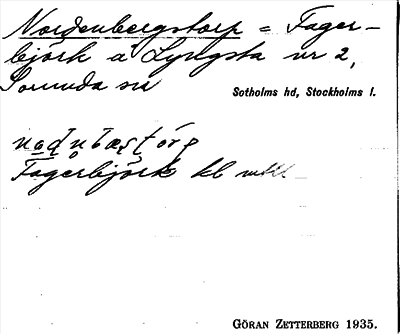 Nordenbergstorp = Fager-
björk å Lyngsta nr 2,
Sorunda sn
Sotholms hd, Stockholms l.
Fagerbjörk kl
GÖRAN ZETTERBERG 1935.